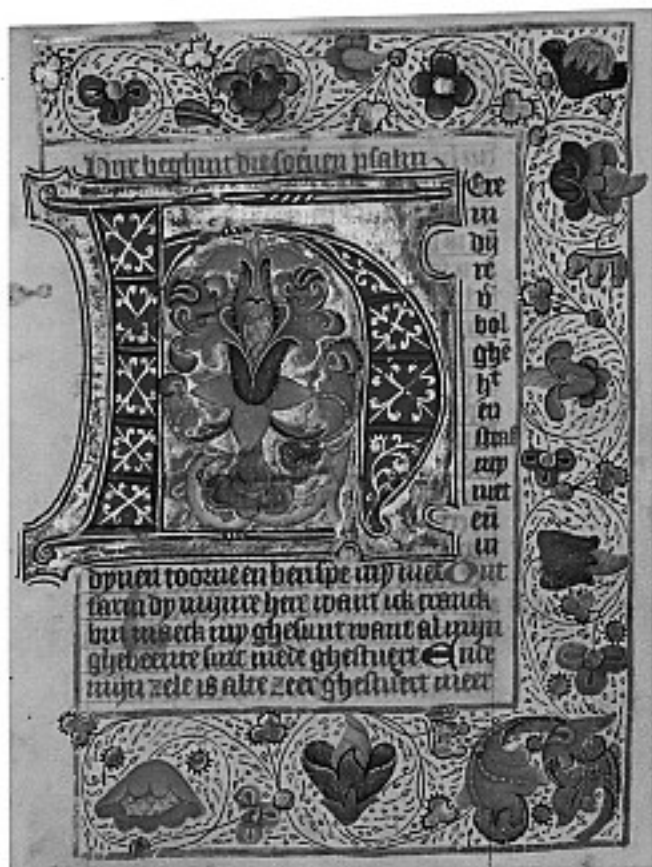 Hyr beghint die soeuen psalm
H Ere
in
dij
re
v
bol
ghē
ht
en
straf
mp
niet
eñ
in
dynen toorne en berispe mp niet Ont
farm dp mijnre here want ick cranck
bin maeck mp ghesunt want al mijn
ghebeente sint mede ghestuert Ende
mijn zele is alte zeer ghestuert meer